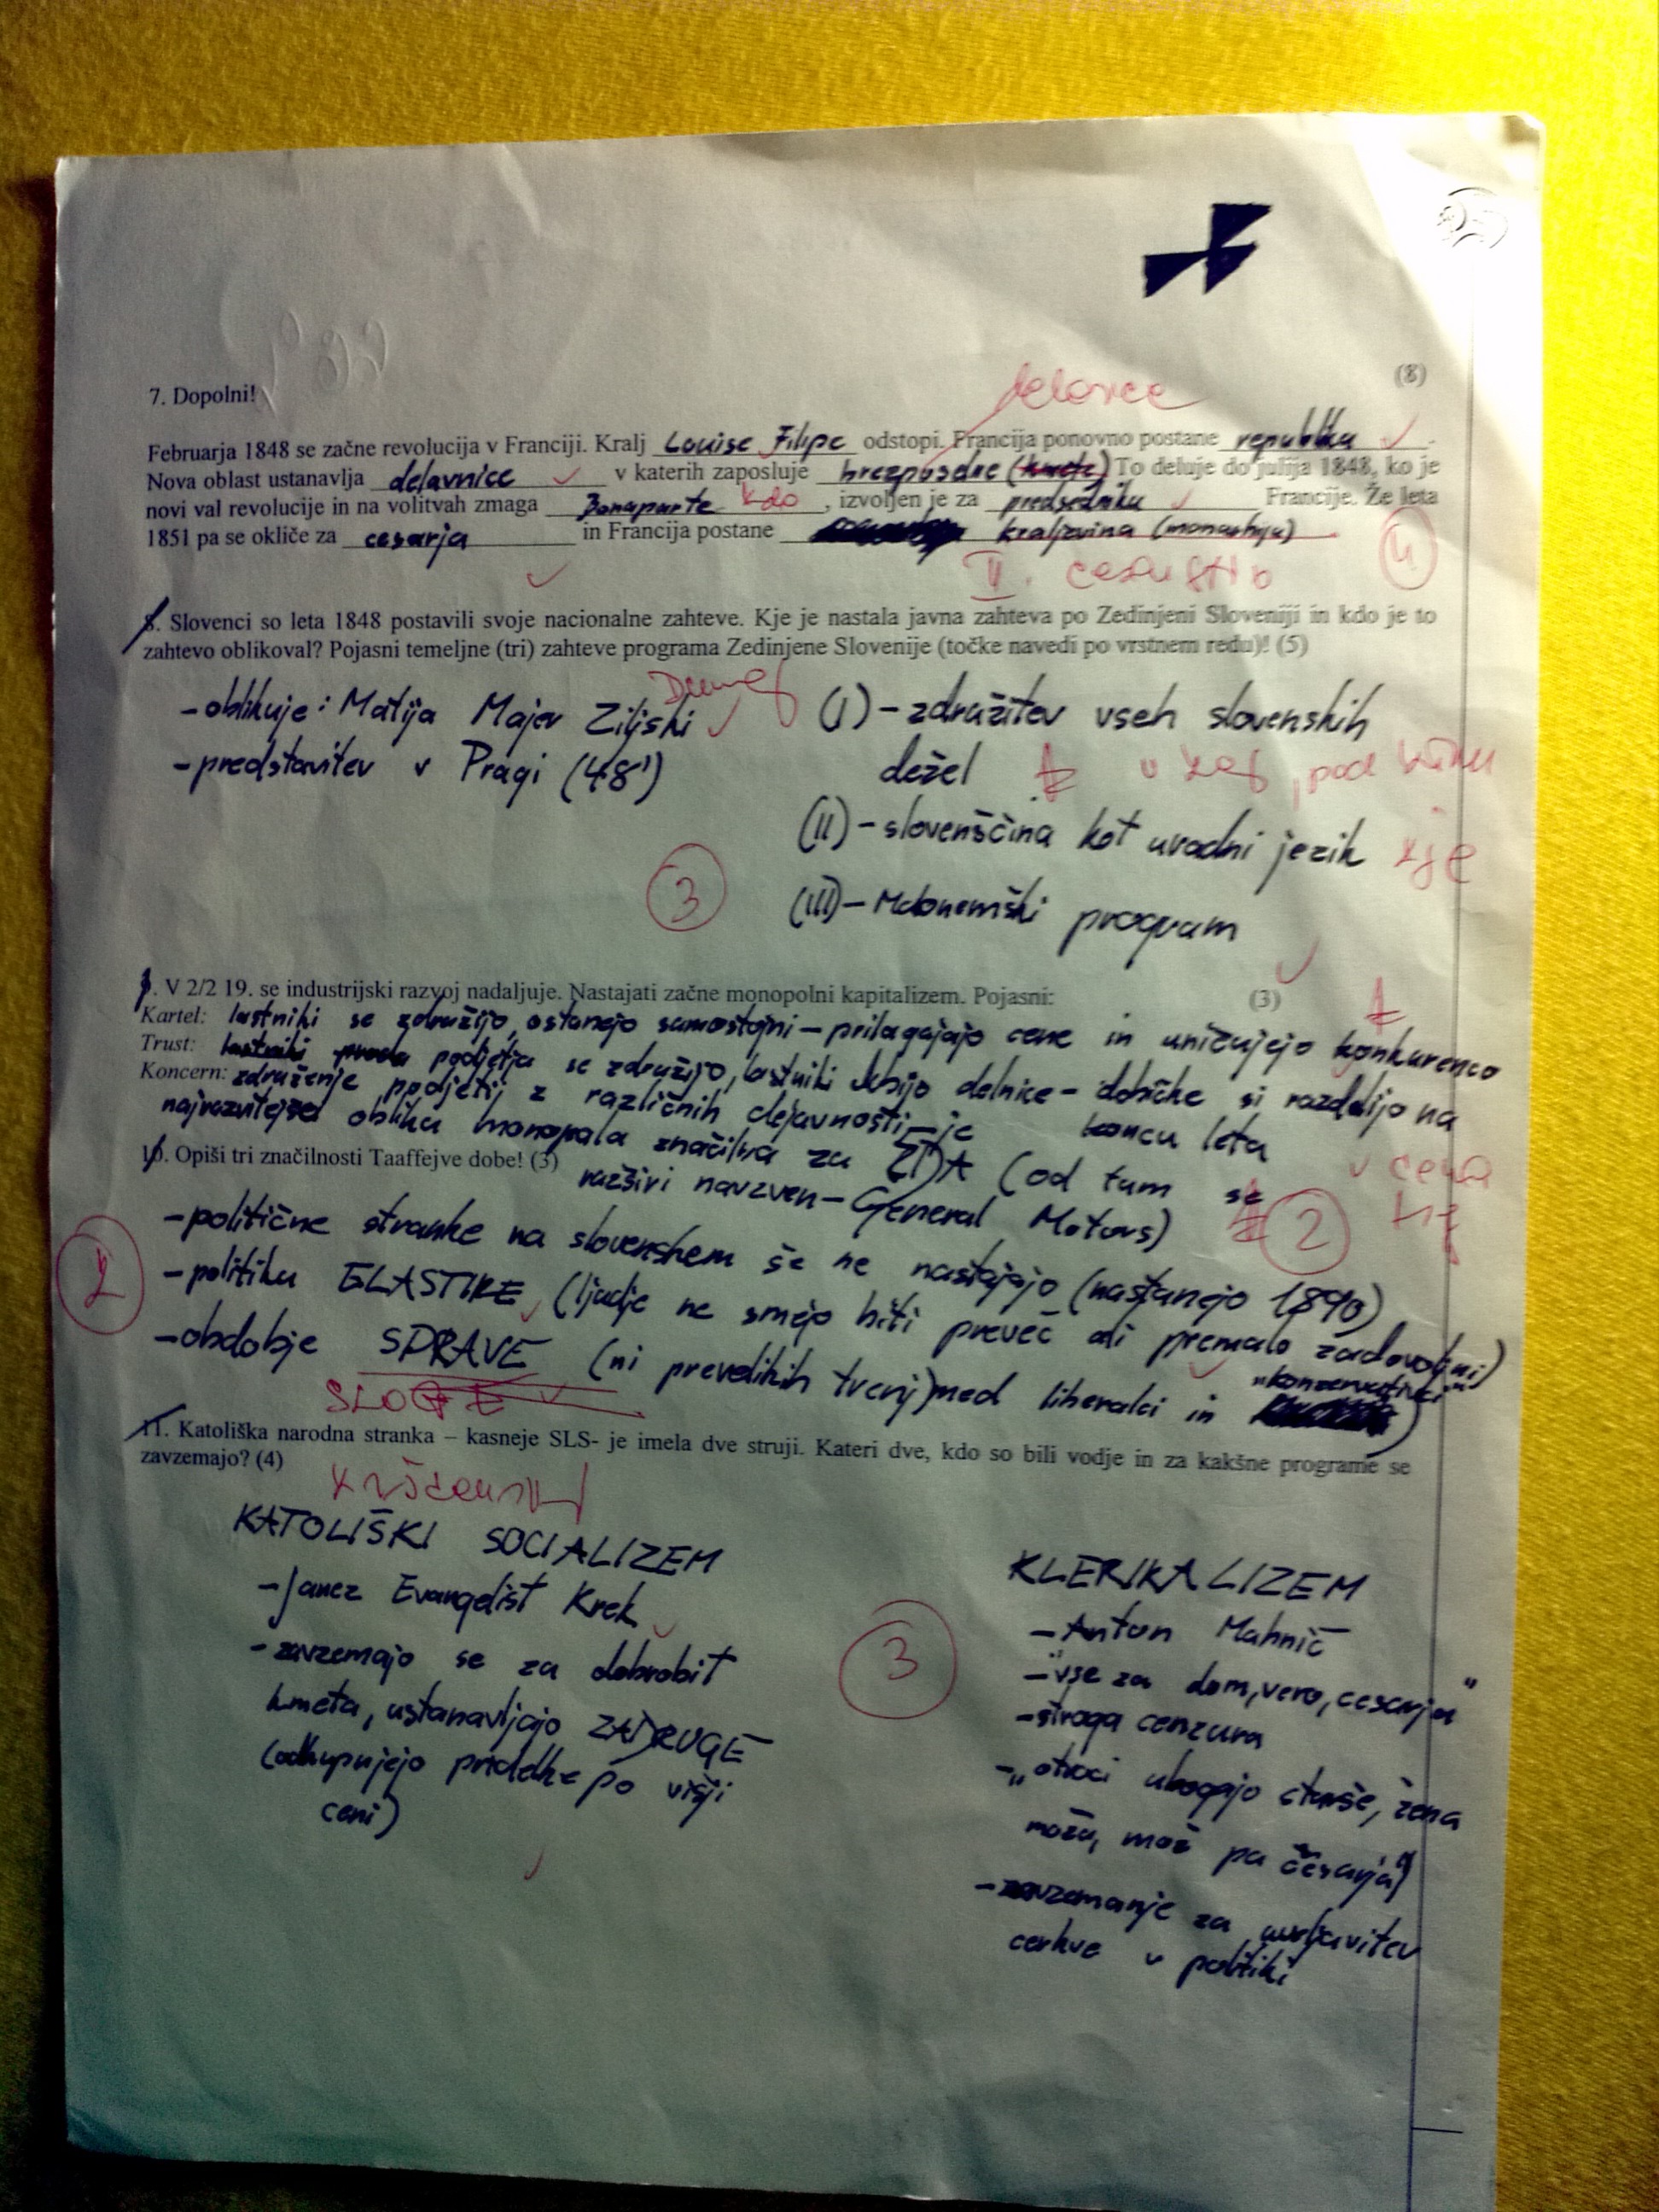 (8)
7. Dopolni!
delavce
Februarja 1848 se začne revolucija v Franciji. Kralj Louise Filipe odstopi. Francija ponovno postane republika.
Nova oblast ustanavlja delavnice v katerih zaposluje brezposelne (kmete) To deluje do julija 1848, ko je
novi val revolucije in na volitvah zmaga Bonaparte kdo, izvoljen je za predsednika Francije. Že leta
1851 pa se okliče za cesarja in Francija postane kraljevina (monarhija)
II. cesarstvo
4
8. Slovenci so leta 1848 postavili svoje nacionalne zahteve. Kje je nastala javna zahteva po Zedinjeni Sloveniji in kdo je to
zahtevo oblikoval? Pojasni temeljne (tri) zahteve programa Zedinjene Slovenije (točke navedi po vrstnem redu)! (5)
Dunaj
- oblikuje: Matija Majer Ziljski
- predstavitev v Pragi (48')
(I) - združitev vseh slovenskih
dežel v kaj, pod kom
(II) - slovenščina kot uradni jezik kje
(III) - Malonemški program
3
9. V 2/2 19. se industrijski razvoj nadaljuje. Nastajati začne monopolni kapitalizem. Pojasni: (3)
Kartel: lastniki se združijo, ostanejo samostojni - prilagajajo cene in uničujejo konkurenco
Trust: podjetja se združijo, lastniki dobijo delnice - dobičke si razdelijo na
koncu leta
Koncern: združenje podjetij z različnih dejavnosti - je
najrazvitejša oblika monopola značilna za ZDA (od tam se
razširi navzven - General Motors)
2
10. Opiši tri značilnosti Taaffejve dobe! (3)
- politične stranke na slovenskem še ne nastajajo (nastanejo 1890)
- politika ELASTIKE (ljudje ne smejo biti preveč ali premalo zadovoljni)
- obdobje SPRAVE (ni prevelikih trenj) med liberalci in "konzervativci"
2
11. Katoliška narodna stranka – kasneje SLS- je imela dve struji. Kateri dve, kdo so bili vodje in za kakšne programe se
zavzemajo? (4)
krščanski
KATOLIŠKI SOCIALIZEM
- Janez Evangelist Krek
- zavzemajo se za dobrobit
kmeta, ustanavljajo ZADRUGE
(odkupujejo pridelke po višji
ceni)
3
KLERIKALIZEM
- Anton Mahnič
- "vse za dom, vero, cesarja"
- stroga cenzura
- "otroci ubogajo starše, žena
moža, mož pa cesarja"
- zavzemanje za
cerkve v politiki